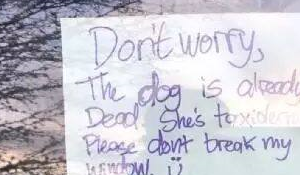 Don't worry,
The dog is already
Dead She's taxidermi
Please dont break my
window. ü